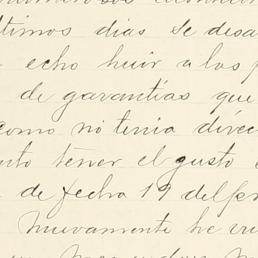 últimos dias se desa
echo huir a los p
de garantías que
como no tenia direc
tener el gusto
de fecha 19 del pr
Nuevamente he